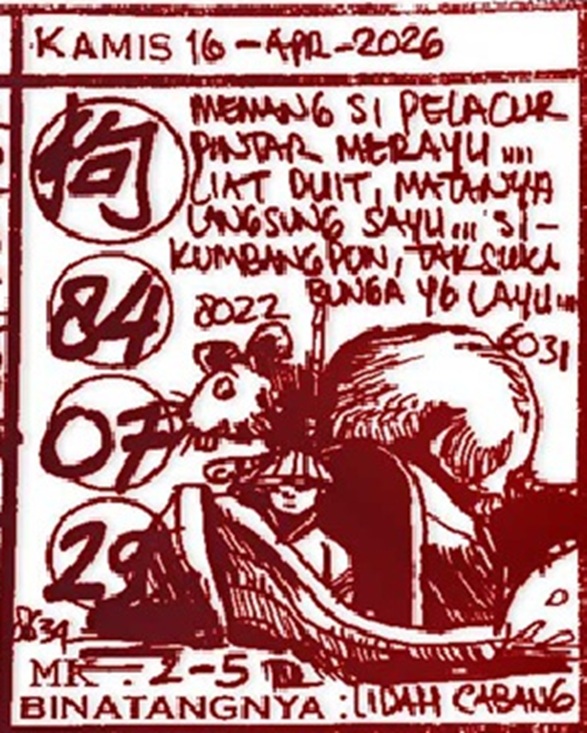 KAMIS 16-APR-2026
狗
MEMANG SI PELACUR
PINTAR MERAYU ....
LIAT DUIT, MATANYA
LANGSUNG SAYU... SI-
KUMBANG PUN, TAK SUKA
BUNGA YG LAYU...
84
8022
6031
07
29
MK : 2-5
BINATANGNYA : LIDAH CABANG